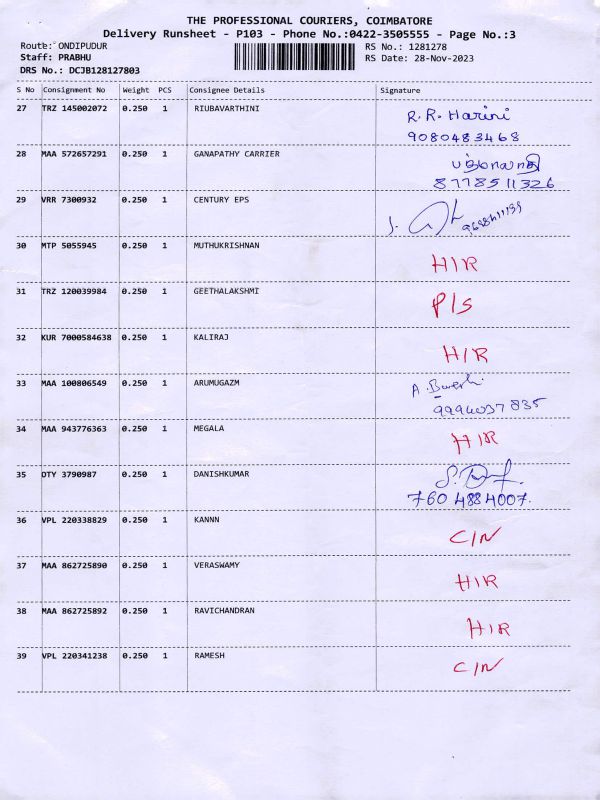 THE PROFESSIONAL COURIERS, COIMBATORE
Delivery Runsheet - P103 - Phone No.:0422-3505555 - Page No.:3
Route: ONDIPUDUR RS No.: 1281278
Staff: PRABHU RS Date: 28-Nov-2023
DRS No.: DCJB128127803
S No Consignment No Weight PCS Consignee Details Signature
27 TRZ 145002072 0.250 1 RIUBAVARTHINI R.R. Harini
9080483468
28 MAA 572657291 0.250 1 GANAPATHY CARRIER
8778511326
29 VRR 7300932 0.250 1 CENTURY EPS
30 MTP 5055945 0.250 1 MUTHUKRISHNAN H/R
31 TRZ 120039984 0.250 1 GEETHALAKSHMI P/S
32 KUR 7000584638 0.250 1 KALIRAJ H/R
33 MAA 100806549 0.250 1 ARUMUGAZM A.
9994037835
34 MAA 943776363 0.250 1 MEGALA H/R
35 OTY 3790987 0.250 1 DANISHKUMAR S.
7604884007.
36 VPL 220338829 0.250 1 KANNN C/N
37 MAA 862725890 0.250 1 VERASWAMY H/R
38 MAA 862725892 0.250 1 RAVICHANDRAN H/R
39 VPL 220341238 0.250 1 RAMESH C/N